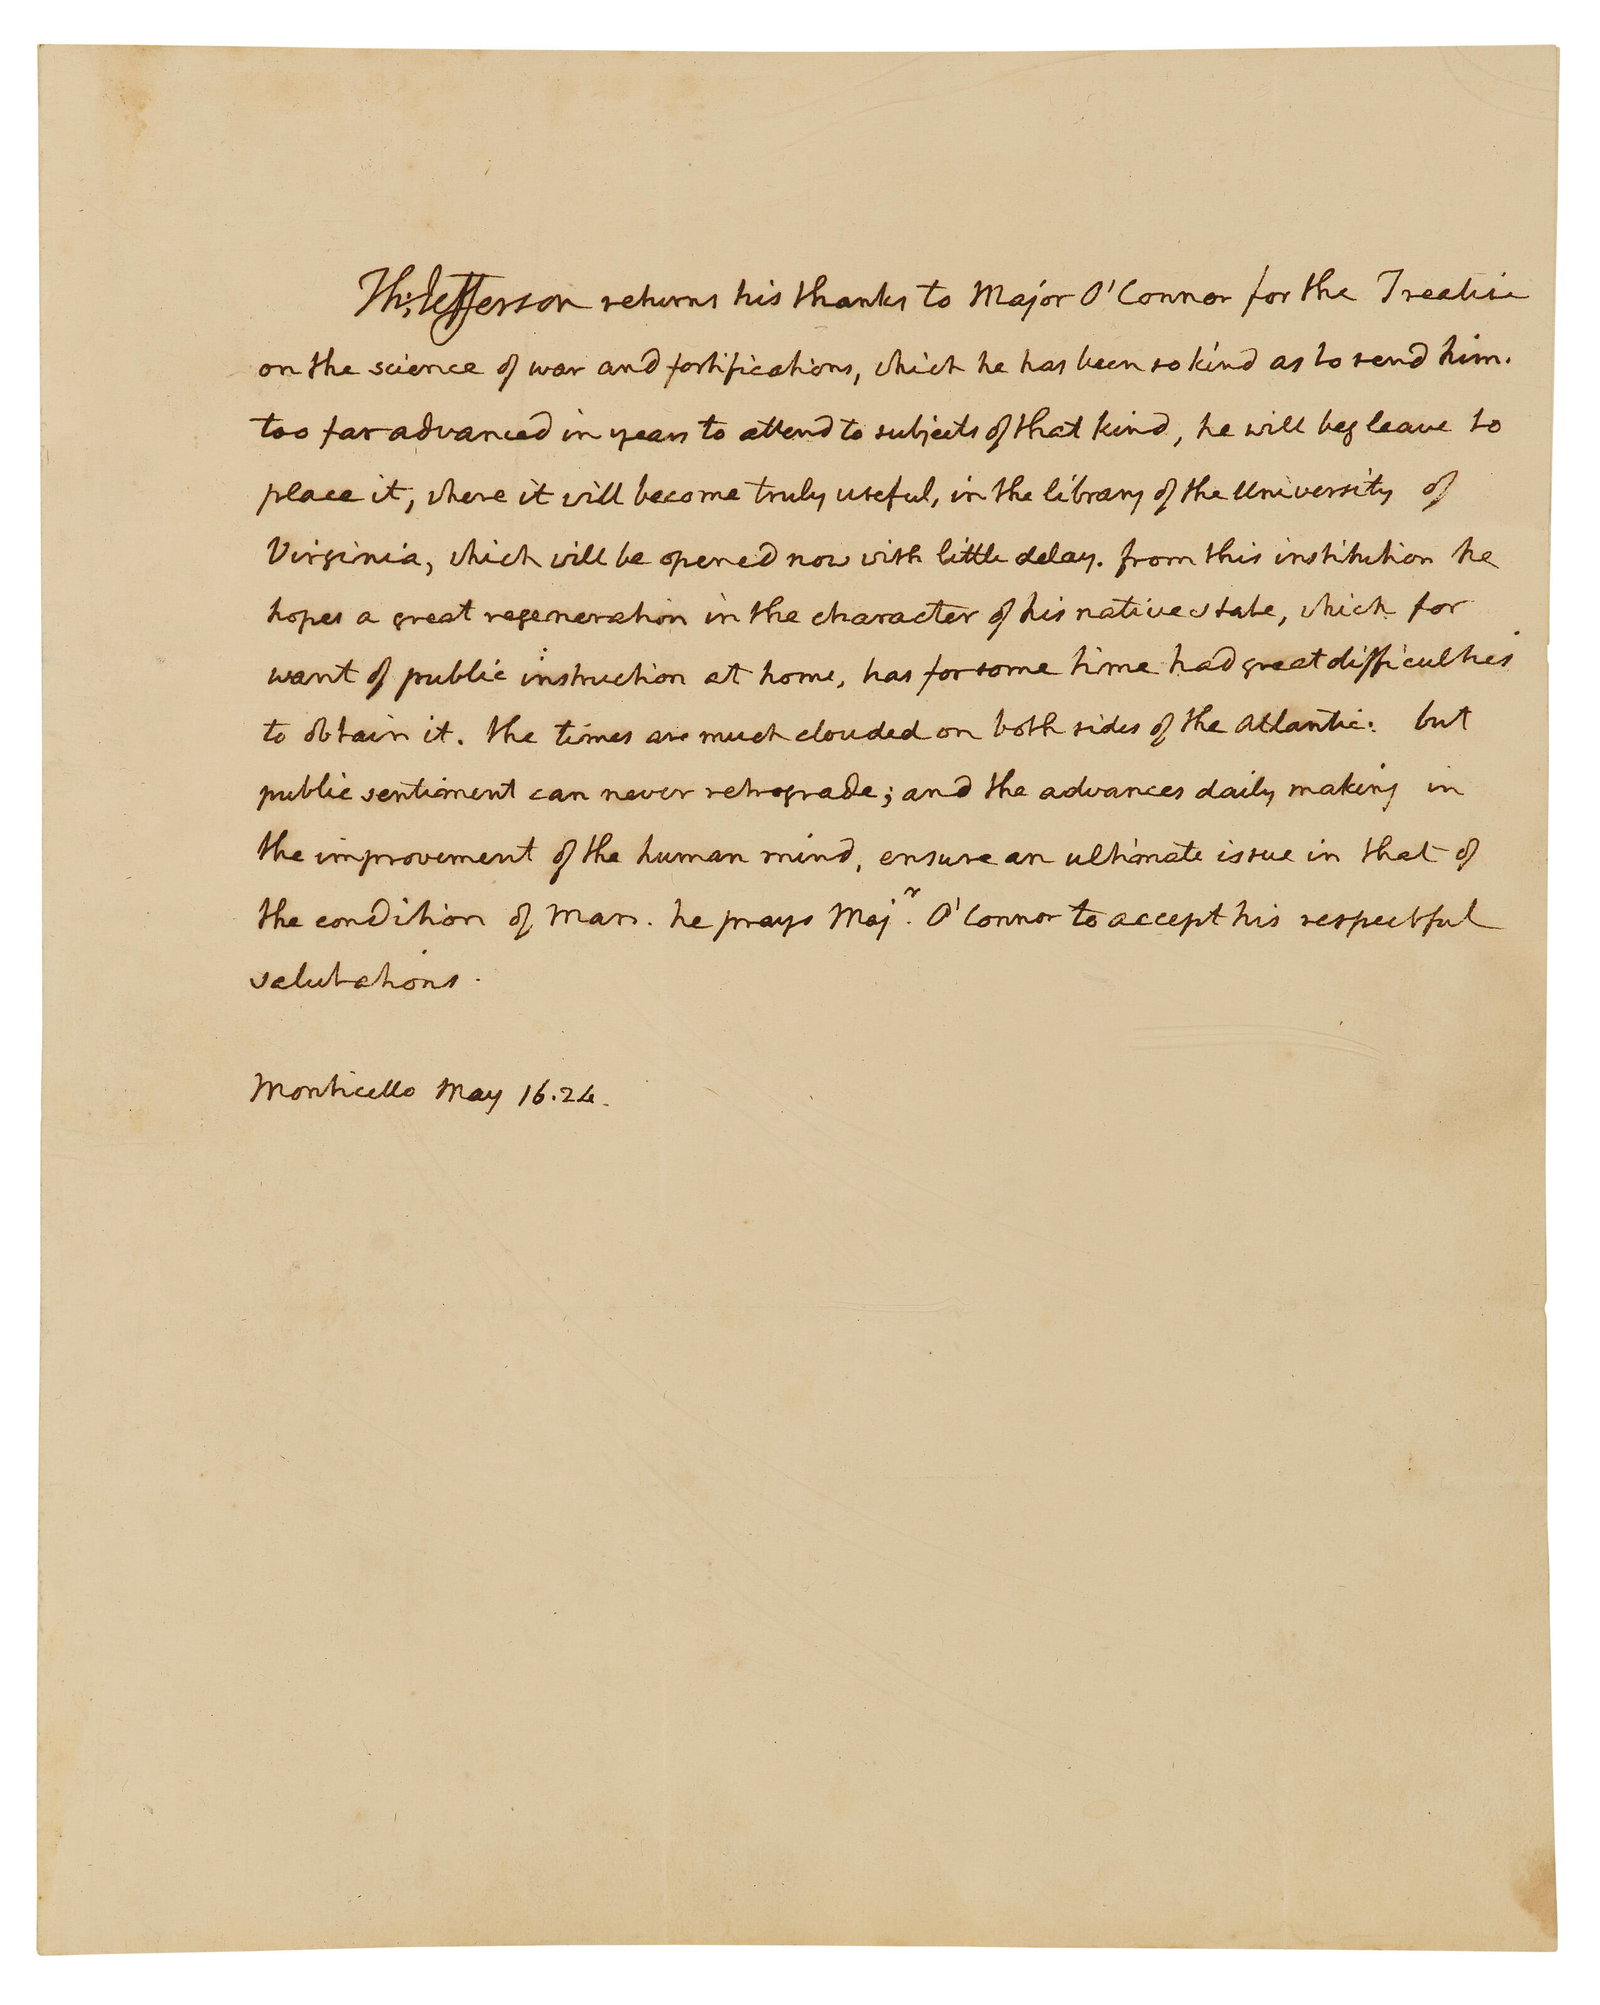 Th: Jefferson returns his thanks to Major O'Connor for the Treatise
on the science of war and fortifications, which he has been so kind as to send him.
too far advanced in years to attend to subjects of that kind, he will beg leave to
place it, where it will become truly useful, in the library of the University of
Virginia, which will be opened now with little delay. from this institution he
hopes a great regeneration in the character of his native state, which for
want of public instruction at home, has for some time had great difficulties
to obtain it. the times are much clouded on both sides of the Atlantic: but
public sentiment can never retrograde; and the advances daily making in
the improvement of the human mind, ensure an ultimate issue in that of
the condition of Man. he prays Majr. O'Connor to accept his respectful
salutations.
Monticello May 16.24.